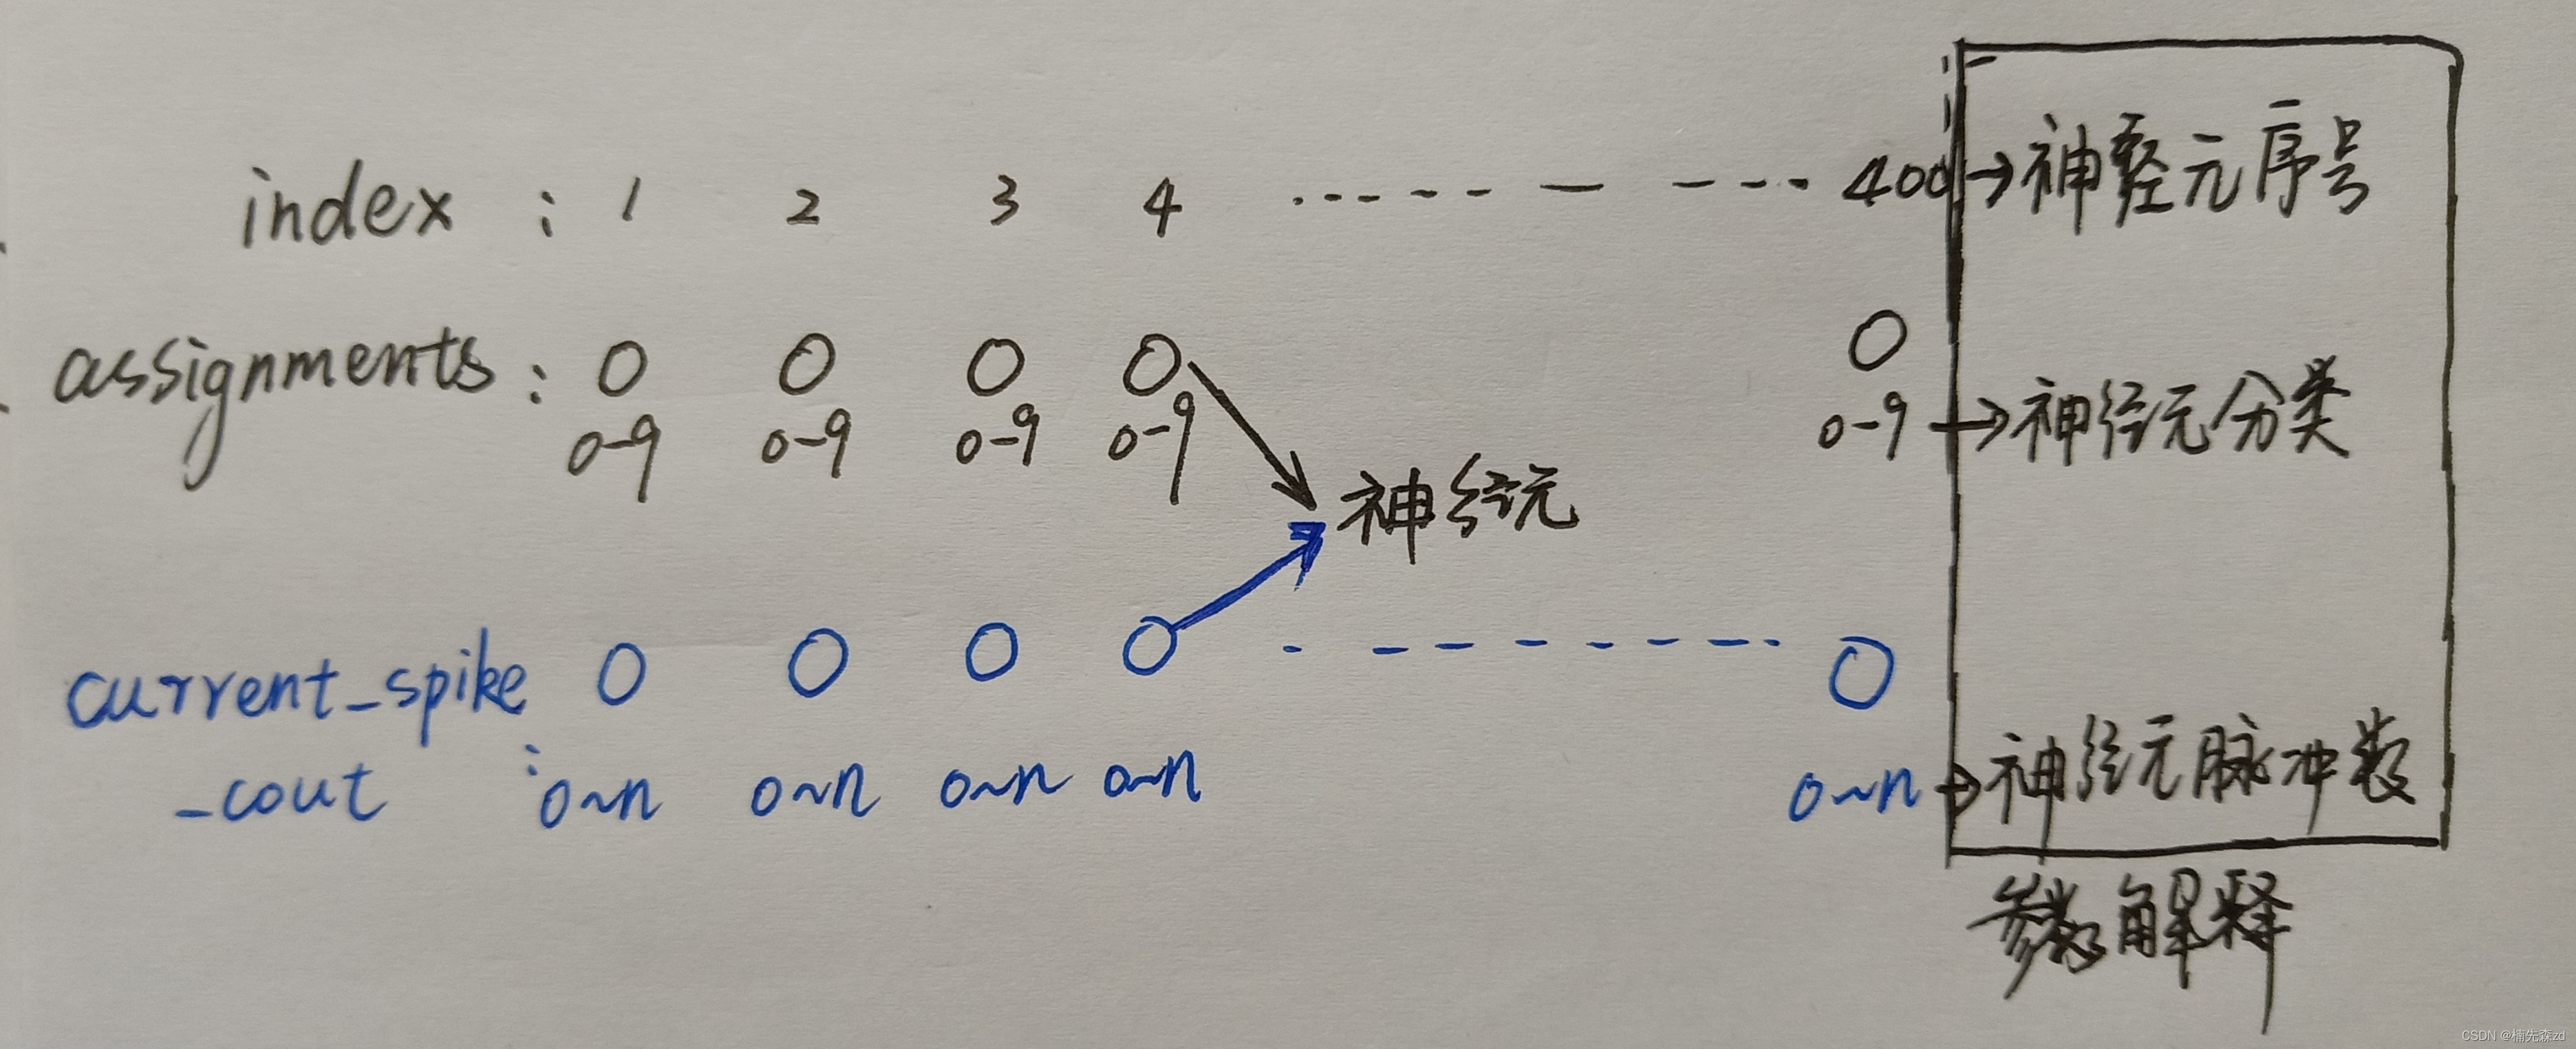 index : 1 2 3 4 ------- 400 → 神经元序号
assignments : O O O O O
0-9 0-9 0-9 0-9 0-9 → 神经元分类
神经元
current_spike O O O O ------- O
_cout : 0~n 0~n 0~n 0~n 0~n → 神经元脉冲数
参数解释
CSDN @楠先森zd